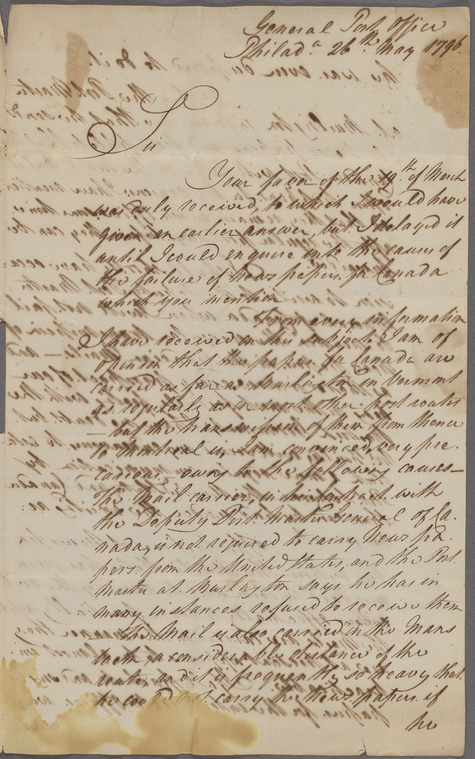 General Post Office
Philad.a 26th May 1796.
Sir
Your favor of the 19th of March
was duly received, to which I would have
given an earlier answer, but I delayed it
until I could enquire into the causes of
the failure of news papers for Canada
which you mention
From every information
I have received on this subject I am of
opinion that the papers for Canada are
carried as far as Burlington in Vermont
as regularly as on most other post routes
— but the transmission of them from thence
to Montreal is I am convinced very pre
carious, owing to the following causes—
The Mail carrier, in his contract with
the Deputy Post Master General of Ca-
nada, is not required to carry News pa-
pers from the United States, and the Post
Master at Burlington says he has in
many instances refused to receive them
— the Mail is also carried in the Mans
a considerable distance of the
route, and it is frequently so heavy that
he could not carry the News papers if
he